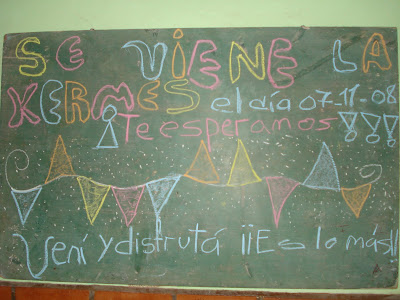 SE VIENE LA
KERMES el día 07-11-08
¡Te esperamos!!!
Vení y disfrutá ¡¡Es lo más!!